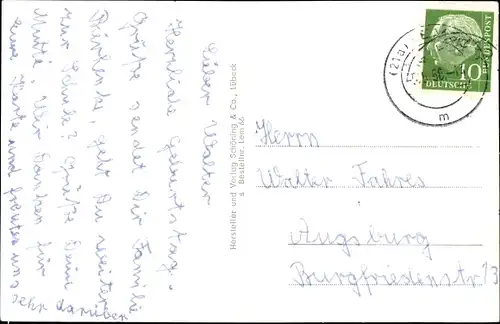 Lieber Walter
Herzliche Geburtstag-
Grüße sendet Dir Familie
gehst Du weiter
zur Schule? Grüße Deine
Mutti, Wir danken für
eure Karte und freuten uns
sehr darüber
Hersteller und Verlag Schöning & Co., Lübeck
s Bestellnr. Lem 66
DEUTSCHE BUNDESPOST
10
(21a)
m
Herrn
Walter Fahres
Augsburg
Burgfriedenstr 13